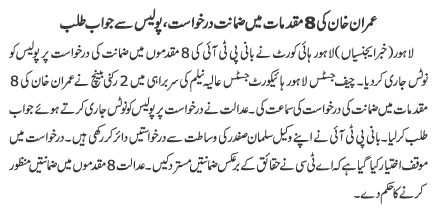 عمران خان کی 8 مقدمات میں ضمانت درخواست، پولیس سے جواب طلب
لاہور (خبر ایجنسیاں) لاہور ہائی کورٹ نے بانی پی ٹی آئی کی 8 مقدموں میں ضمانت کی درخواست پر پولیس کو
نوٹس جاری کر دیا۔ چیف جسٹس لاہور ہائیکورٹ جسٹس عالیہ نیلم کی سربراہی میں 2 رکنی بینچ نے عمران خان کی 8
مقدمات میں ضمانت کی درخواست کی سماعت کی۔ عدالت نے درخواست پر پولیس کو نوٹس جاری کرتے ہوئے جواب
طلب کر لیا۔ بانی پی ٹی آئی نے اپنے وکیل سلمان صفدر کی وساطت سے درخواستیں دائر کر رکھی ہیں۔ درخواست میں
موقف اختیار کیا گیا ہے کہ اے ٹی سی نے حقائق کے برعکس ضمانتیں مسترد کیں۔ عدالت 8 مقدموں میں ضمانتیں منظور
کرنے کا حکم دے۔